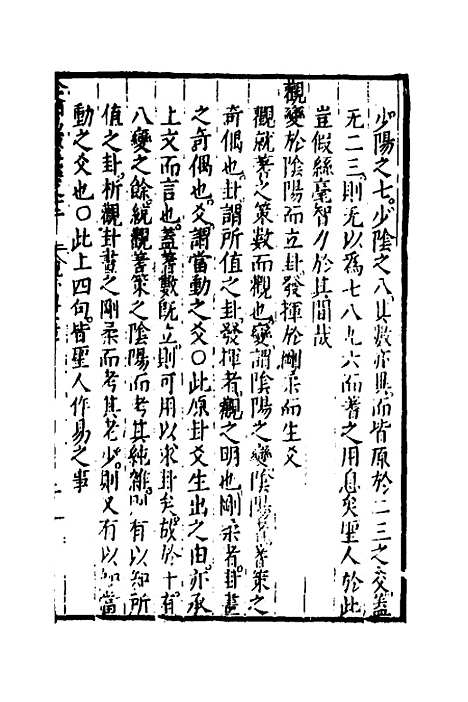 少陽之七少陰之八其數亦具而皆原於二三之交蓋
无二三則无以爲七八九六而蓍之用息矣聖人於此
豈假絲毫智力於其間哉
觀變於陰陽而立卦發揮於剛柔而生爻
觀就蓍之策數而觀也變謂陰陽之變陰陽蓍策之
奇偶也卦謂所值之卦發揮者觀之明也剛柔者卦畫
之奇偶也爻謂當動之爻〇此原卦爻生出之由亦承
上文而言也蓋蓍數既立則可用以求卦矣故於十有
八變之餘統觀蓍策之陰陽而考其純雜則有以知所
值之卦析觀卦畫之剛柔而考其老少則又有以知當
動之爻也〇此上四句皆聖人作易之事